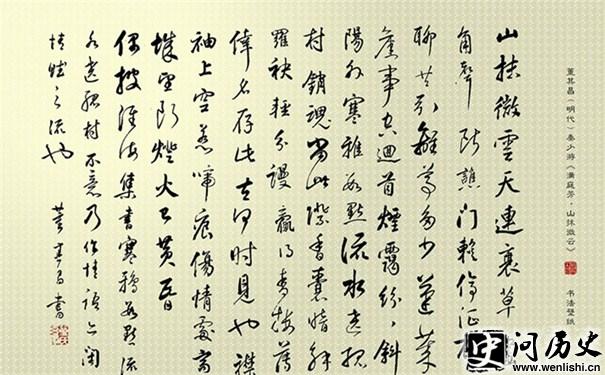 董其昌（明代）秦少游《满庭芳·山抹微云》 书法壁纸
山抹微雲天連衰草
角聲斷譙門暫停征
聊共引離尊多少蓬萊
舊事空迴首煙靄紛紛斜
陽外寒鴉數點流水遶孤
村銷魂當此際香囊暗解
羅袂輕分謾贏得青樓薄
倖名存此去何時見也襟
袖上空惹啼痕傷情處高
城望斷燈火已黃昏
偶披淮海集書寒鴉數點流
水遶孤村不意乃作情語亦閑
情賦之流也 董其昌書
史问历史
www.wenlishi.cn